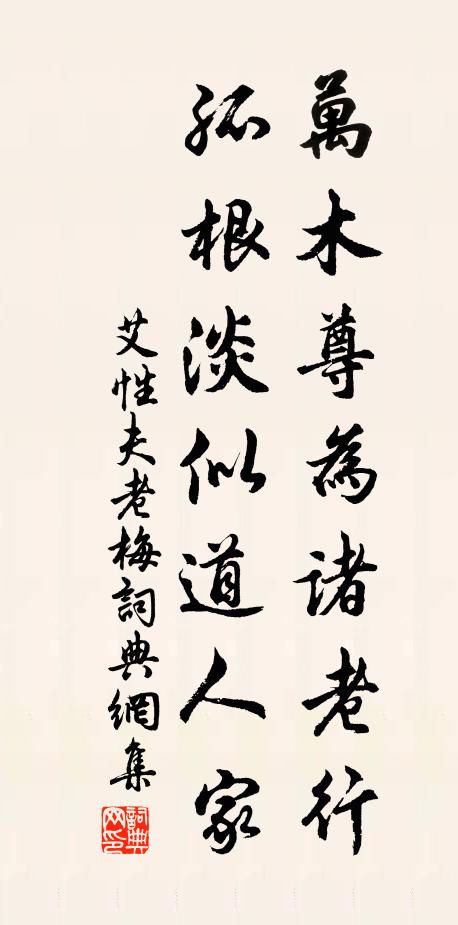 萬木尊為諸老行
孤根淡似道人家
艾性夫老梅詞典網集
詞典網印